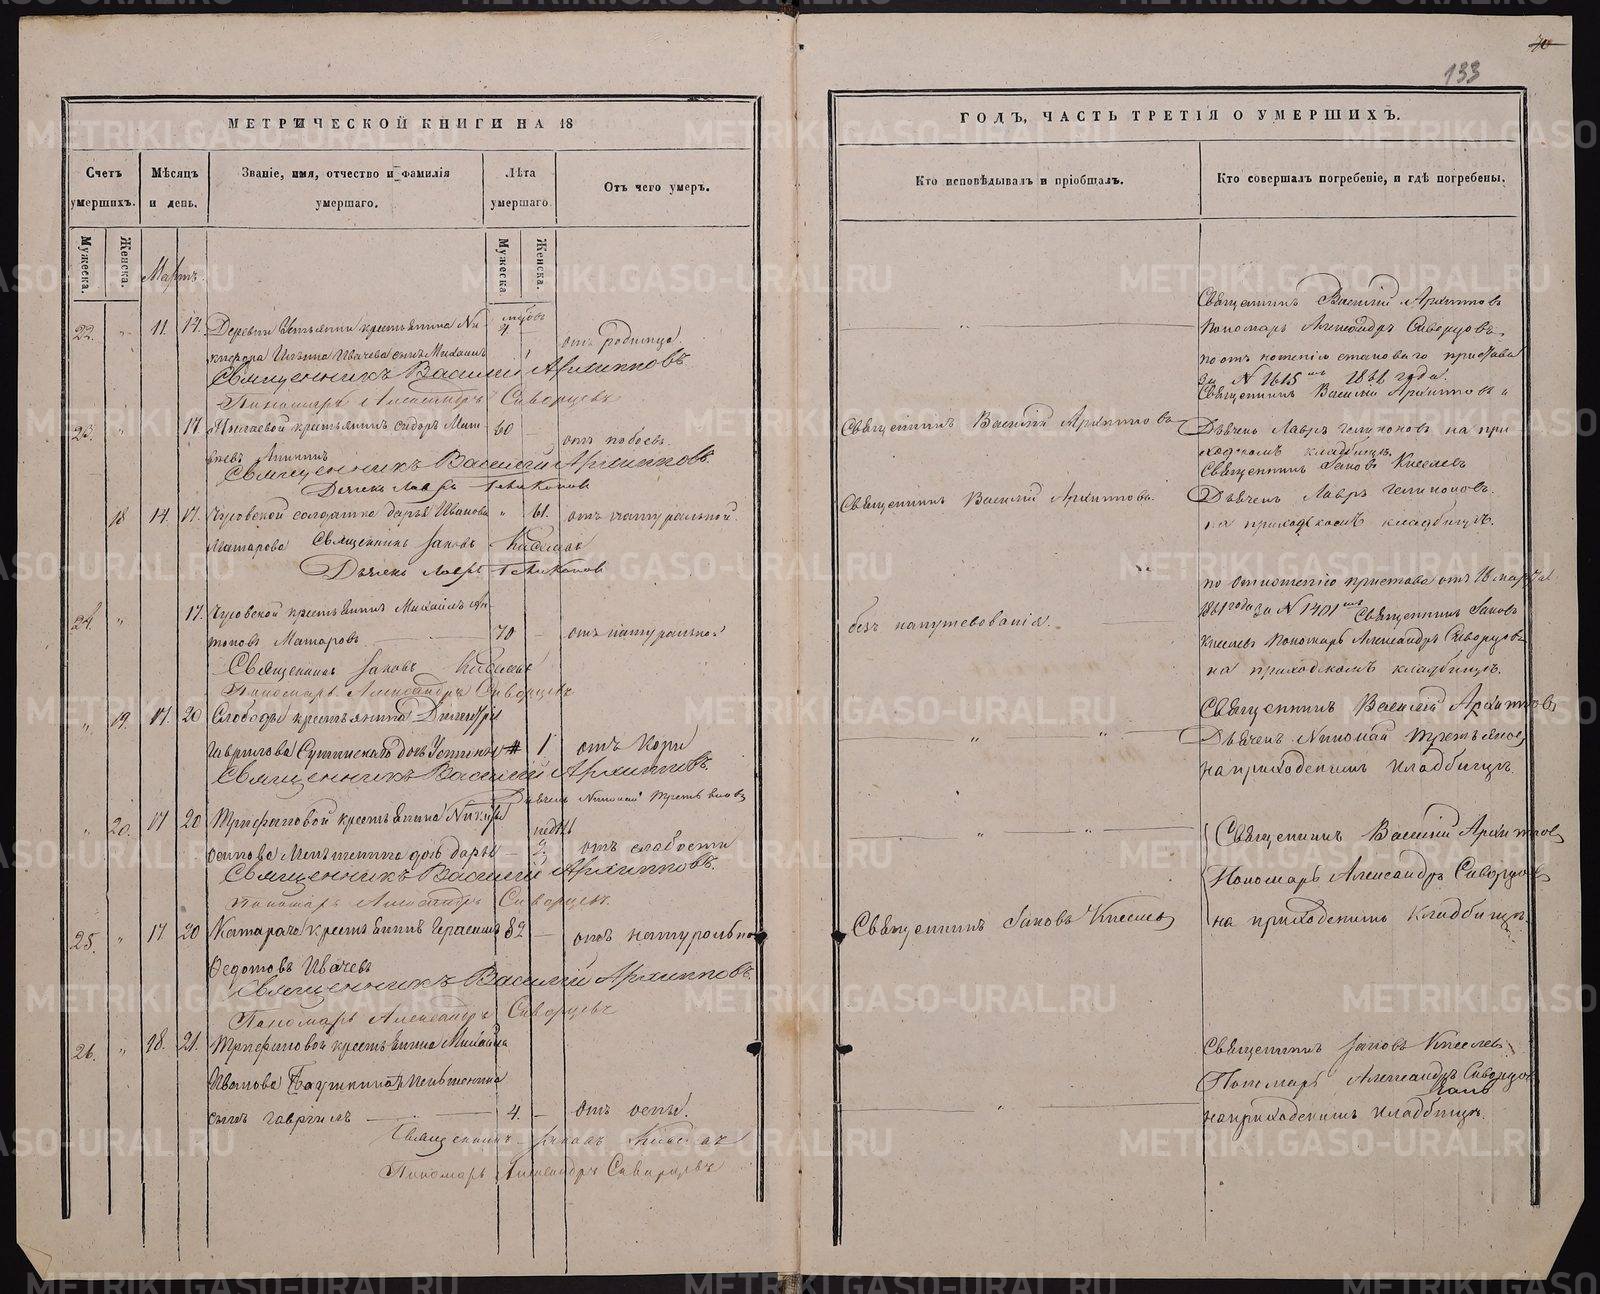 133
МЕТРИЧЕСКОЙ КНИГИ НА 18
ГОДЪ, ЧАСТЬ ТРЕТІЯ О УМЕРШИХЪ.
Счетъ умершихъ.
Мѣсяцъ и день.
Званіе, имя, отчество и фамилія умершаго.
Лѣта умершаго.
Отъ чего умеръ.
Кто исповѣдывалъ и пріобщалъ.
Кто совершалъ погребеніе, и гдѣ погребены.
Мужеска.
Женска.
Мужеска
Женска.
Мартъ
22. " 11. 14. Деревни крестьянина Ни-
кифора Ильина Ивачева сынъ Михаилъ
отъ родимца.
Священникъ Василій Архиповъ.
Пономарь Александръ Скворцовъ
Священникъ Василій Архиповъ
Пономарь Александръ Скворцовъ
по отношенію становаго пристава
за N 1615 1861 года.
23. " 17. крестьянинъ Сидоръ 60
отъ побоевъ.
Священникъ Василій Архиповъ.
Дьячекъ Лавръ Геликоновъ
Священникъ Василій Архиповъ
Священникъ Василій Архиповъ и
Дьячекъ Лавръ Геликоновъ на при
ходскомъ кладбищѣ.
18 14. 17. солдатка Дарья Иванова " 61. отъ натуральной.
Матарова Священникъ Іаковъ Киселевъ
Дьячекъ Лавръ Геликоновъ
Священникъ Василій Архиповъ.
Священникъ Іаковъ Киселевъ
Дьячекъ Лавръ Геликоновъ.
на приходскомъ кладбищѣ.
24. " 17. крестьянинъ Михаилъ Ан-
тоновъ Матаровъ 70 — отъ натуральной
Священникъ Іаковъ Киселевъ
Пономарь Александръ Скворцовъ
безъ напутствованія.
по отношенію пристава отъ 16 марта
1861 года за N 1401 Священникъ Іаковъ
Киселевъ Пономарь Александръ Скворцовъ
на приходскомъ кладбищѣ.
" 19. 17. 20 Слободы крестьянина Димитрія
Гаврилова дочь Устинья 1 отъ кори
Священникъ Василій Архиповъ.
Дьячекъ Николай Третьяковъ
Священникъ Василій Архиповъ
Дьячекъ Николай Третьяковъ
на приходскомъ кладбищѣ.
" 20. 17 20 Трифановой крестьянина Никиты
Осипова Меньшенина дочь Дарья недѣль 2. отъ слабости
Священникъ Василій Архиповъ.
Пономарь Александръ Скворцовъ.
Священникъ Василій Архиповъ
Пономарь Александръ Скворцовъ
на приходскомъ кладбищѣ.
25. " 17 20 крестьянинъ Герасимъ 82 — отъ натуральной
Федотовъ Ивачевъ
Священникъ Василій Архиповъ.
Пономарь Александръ Скворцовъ
Священникъ Іаковъ Киселевъ
26. " 18. 21. Трифановой крестьянина Михайла
Иванова Меньшенина
сынъ Гавріилъ 4. — отъ оспы.
Священникъ Іаковъ Киселевъ
Пономарь Александръ Скворцовъ
Священникъ Іаковъ Киселевъ
Пономарь Александръ Скворцовъ
на приходскомъ кладбищѣ.
METRIKI.GASO-URAL.RU